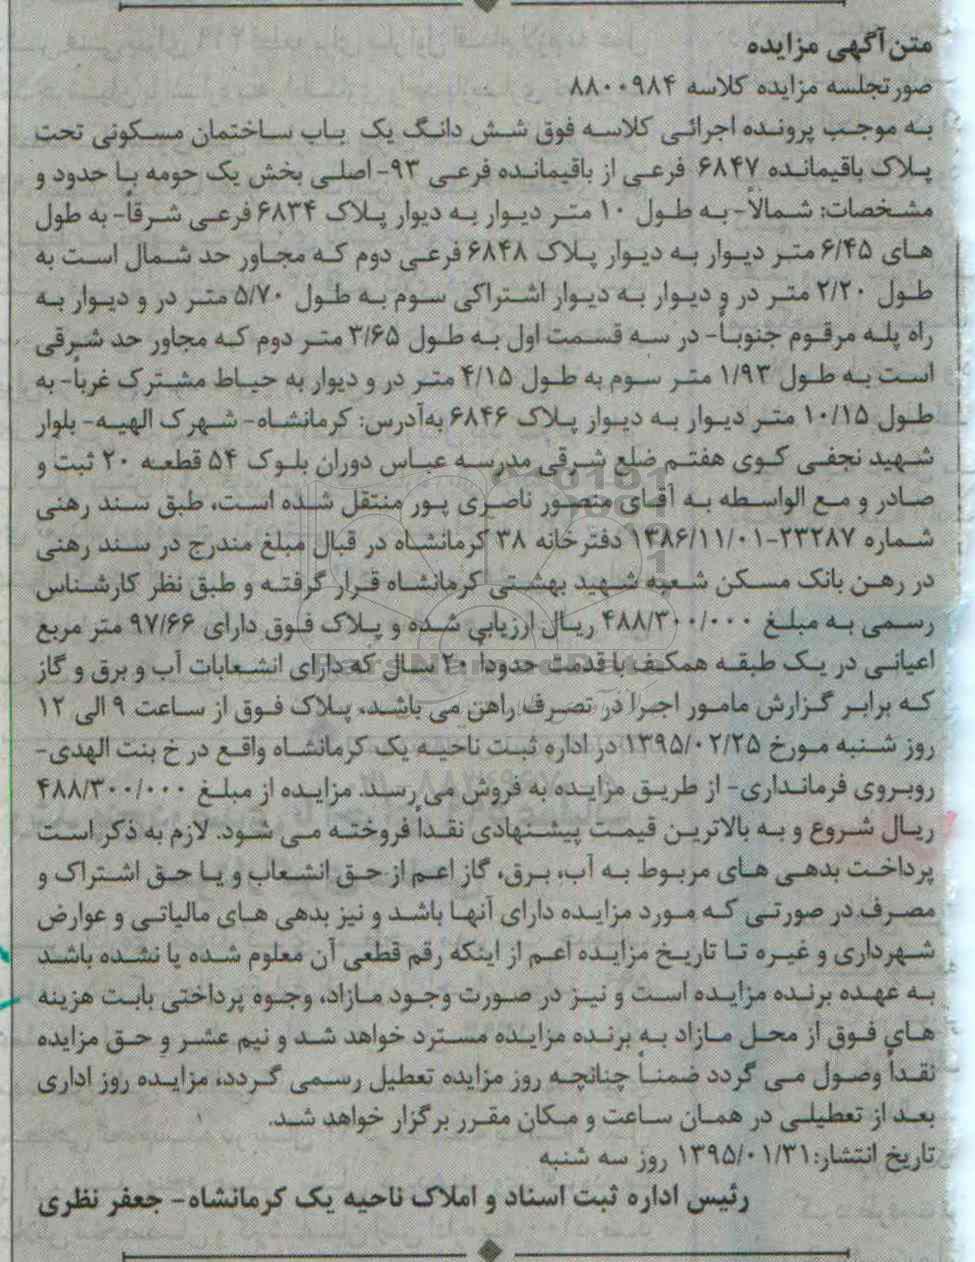 متن آگهی مزایده
صورتجلسه مزایده کلاسه ۸۸۰۰۹۸۴
به موجب پرونده اجرائی کلاسه فوق شش دانگ یک باب ساختمان مسکونی تحت
پلاک باقیمانده ۶۸۴۷ فرعی از باقیمانده فرعی ۹۳- اصلی بخش یک حومه با حدود و
مشخصات: شمالاً- به طول ۱۰ متر دیوار به دیوار پلاک ۶۸۳۴ فرعی شرقاً- به طول
های ۶/۴۵ متر دیوار به دیوار پلاک ۶۸۴۸ فرعی دوم که مجاور حد شمال است به
طول ۲/۲۰ متر در و دیوار به دیوار اشتراکی سوم به طول ۵/۷۰ متر در و دیوار به
راه پله مرقوم جنوباً- در سه قسمت اول به طول ۳/۶۵ متر دوم که مجاور حد شرقی
است به طول ۱/۹۳ متر سوم به طول ۴/۱۵ متر در و دیوار به حیاط مشترک غرباً- به
طول ۱۰/۱۵ متر دیوار به دیوار پلاک ۶۸۴۶ به‌آدرس: کرمانشاه- شهرک الهیه- بلوار
شهید نجفی کوی هفتم ضلع شرقی مدرسه عباس دوران بلوک ۵۴ قطعه ۲۰ ثبت و
صادر و مع الواسطه به آقای منصور ناصری پور منتقل شده است، طبق سند رهنی
شماره ۲۳۲۸۷-۱۳۸۶/۱۱/۰۱ دفترخانه ۳۸ کرمانشاه در قبال مبلغ مندرج در سند رهنی
در رهن بانک مسکن شعبه شهید بهشتی کرمانشاه قرار گرفته و طبق نظر کارشناس
رسمی به مبلغ ۴۸۸/۳۰۰/۰۰۰ ریال ارزیابی شده و پلاک فوق دارای ۹۷/۶۶ متر مربع
اعیانی در یک طبقه همکف با قدمت حدوداً ۲۰ سال که دارای انشعابات آب و برق و گاز
که برابر گزارش مامور اجرا در تصرف راهن می باشد، پلاک فوق از ساعت ۹ الی ۱۲
روز شنبه مورخ ۱۳۹۵/۰۲/۲۵ در اداره ثبت ناحیه یک کرمانشاه واقع در خ بنت الهدی-
روبروی فرمانداری- از طریق مزایده به فروش می رسد. مزایده از مبلغ ۴۸۸/۳۰۰/۰۰۰
ریال شروع و به بالاترین قیمت پیشنهادی نقداً فروخته می شود. لازم به ذکر است
پرداخت بدهی های مربوط به آب، برق، گاز اعم از حق انشعاب و یا حق اشتراک و
مصرف در صورتی که مورد مزایده دارای آنها باشد و نیز بدهی های مالیاتی و عوارض
شهرداری و غیره تا تاریخ مزایده اعم از اینکه رقم قطعی آن معلوم شده یا نشده باشد
به عهده برنده مزایده است و نیز در صورت وجود مازاد، وجوه پرداختی بابت هزینه
های فوق از محل مازاد به برنده مزایده مسترد خواهد شد و نیم عشر و حق مزایده
نقداً وصول می گردد ضمناً چنانچه روز مزایده تعطیل رسمی گردد، مزایده روز اداری
بعد از تعطیلی در همان ساعت و مکان مقرر برگزار خواهد شد.
تاریخ انتشار: ۱۳۹۵/۰۱/۳۱ روز سه شنبه
رئیس اداره ثبت اسناد و املاک ناحیه یک کرمانشاه- جعفر نظری